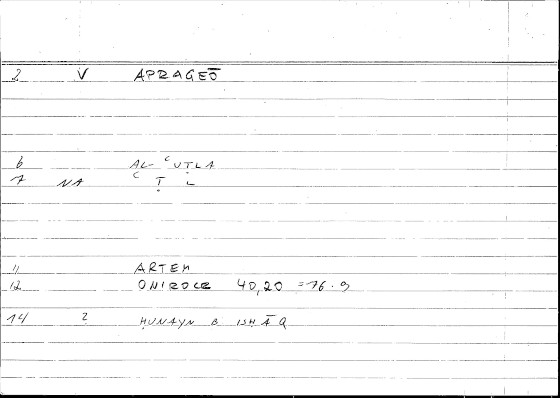 2 V APRAGEŌ
6 AL-ʿUṬLA
7 NA ʿ Ṭ L
11 ARTEM
12 ONIROCR 40,20 = 76.9
14 2 ḤUNAYN B ISḤĀQ